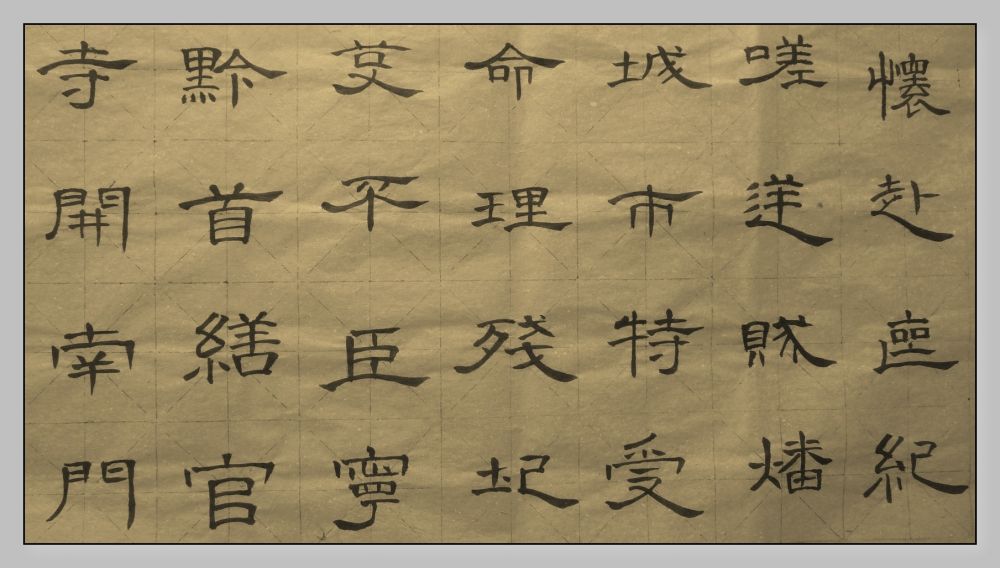 懷赴喪紀
嗟逆賊燔
城市特受
命理殘圮
芟不臣寧
黔首繕官
寺開南門